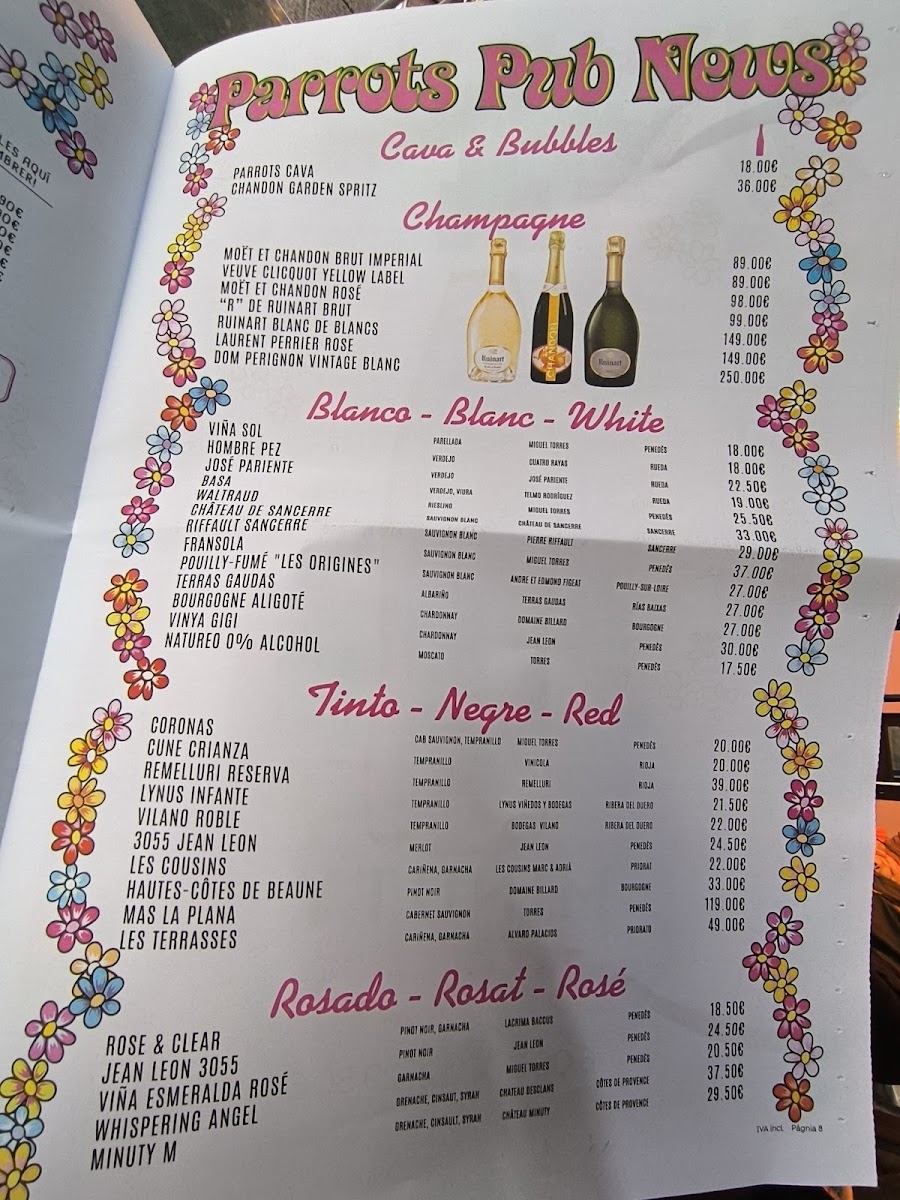 LES AQUÍ
MBRER!
90€
Parrots Pub News
Cava & Bubbles
PARROTS CAVA 18.00€
CHANDON GARDEN SPRITZ 36.00€
Champagne
MOËT ET CHANDON BRUT IMPERIAL 89.00€
VEUVE CLICQUOT YELLOW LABEL 89.00€
MOËT ET CHANDON ROSÉ 98.00€
“R” DE RUINART BRUT 99.00€
RUINART BLANC DE BLANCS 149.00€
LAURENT PERRIER ROSE 149.00€
DOM PERIGNON VINTAGE BLANC 250.00€
Ruinart CHANDON Ruinart
Blanco - Blanc - White
VIÑA SOL PARELLADA MIGUEL TORRES PENEDÈS 18.00€
HOMBRE PEZ VERDEJO CUATRO RAYAS RUEDA 18.00€
JOSÉ PARIENTE VERDEJO JOSÉ PARIENTE RUEDA 22.50€
BASA VERDEJO, VIURA TELMO RODRÍGUEZ RUEDA 19.00€
WALTRAUD RIESLING MIGUEL TORRES PENEDÈS 25.50€
CHÂTEAU DE SANCERRE SAUVIGNON BLANC CHÂTEAU DE SANCERRE SANCERRE 33.00€
RIFFAULT SANCERRE SAUVIGNON BLANC PIERRE RIFFAULT SANCERRE 29.00€
FRANSOLA SAUVIGNON BLANC MIGUEL TORRES PENEDÈS 37.00€
POUILLY-FUMÉ "LES ORIGINES" SAUVIGNON BLANC ANDRE ET EDMOND FIGEAT POUILLY-SUR-LOIRE 27.00€
TERRAS GAUDAS ALBARIÑO TERRAS GAUDAS RÍAS BAIXAS 27.00€
BOURGOGNE ALIGOTÉ CHARDONNAY DOMAINE BILLARD BOURGOGNE 27.00€
VINYA GIGI CHARDONNAY JEAN LEON PENEDÈS 30.00€
NATUREO 0% ALCOHOL MOSCATO TORRES PENEDÈS 17.50€
Tinto - Negre - Red
CORONAS CAB SAUVIGNON, TEMPRANILLO MIGUEL TORRES PENEDÈS 20.00€
CUNE CRIANZA TEMPRANILLO VINICOLA RIOJA 20.00€
REMELLURI RESERVA TEMPRANILLO REMELLURI RIOJA 39.00€
LYNUS INFANTE TEMPRANILLO LYNUS VIÑEDOS Y BODEGAS RIBERA DEL DUERO 21.50€
VILANO ROBLE TEMPRANILLO BODEGAS VILANO RIBERA DEL DUERO 22.00€
3055 JEAN LEON MERLOT JEAN LEON PENEDÈS 24.50€
LES COUSINS CARIÑENA, GARNACHA LES COUSINS MARC & ADRIÀ PRIORAT 22.00€
HAUTES-CÔTES DE BEAUNE PINOT NOIR DOMAINE BILLARD BOURGOGNE 33.00€
MAS LA PLANA CABERNET SAUVIGNON TORRES PENEDÈS 119.00€
LES TERRASSES CARIÑENA, GARNACHA ALVARO PALACIOS PRIORATO 49.00€
Rosado - Rosat - Rosé
ROSE & CLEAR PINOT NOIR, GARNACHA LACRIMA BACCUS PENEDÈS 18.50€
JEAN LEON 3055 PINOT NOIR JEAN LEON PENEDÈS 24.50€
VIÑA ESMERALDA ROSÉ GARNACHA MIGUEL TORRES PENEDÈS 20.50€
WHISPERING ANGEL GRENACHE, CINSAUT, SYRAH CHATEAU DESCLANS CÔTES DE PROVENCE 37.50€
MINUTY M GRENACHE, CINSAULT, SYRAH CHÂTEAU MINUTY CÔTES DE PROVENCE 29.50€
IVA incl. Págnia 8